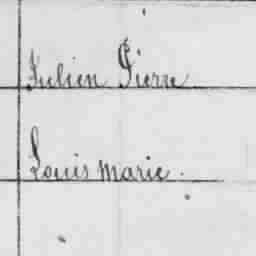 Julien Pierre
Louis Marie.